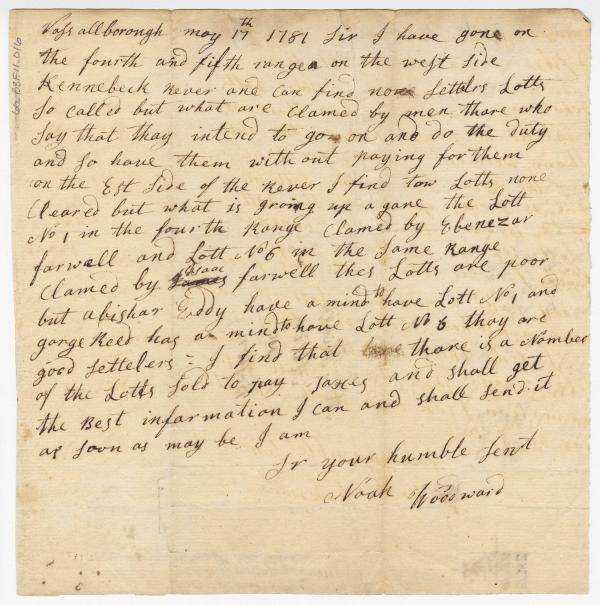 Vassallborough may 17th 1781 Sir I have gone on
the fourth and fifth ranges on the west side
Kennebeck River and can find none Settlers Lotts
So called but what are Clamed by men thare who
Say that thay intend to go on and do the duty
and so have them with out paying for them
on the Est side of the River I find tow Lotts none
Cleared but what is groing up a gane the Lott
No 1 in the fourth Range Clamed by Ebenezar
farwell and Lott No 6 in the same Range
Clamed by Isaac farwell thes Lotts are poor
but abishar Eddy have a mind to have Lott No 1 and
gorge Reed has a mind to have Lott No 6 thay are
good settelers - I find that thare is a Nomber
of the Lotts Sold to pay taxes and shall get
the Best infarmation I can and shall send it
as soon as may be I am
Sr your humble Sent
Noah Woodward